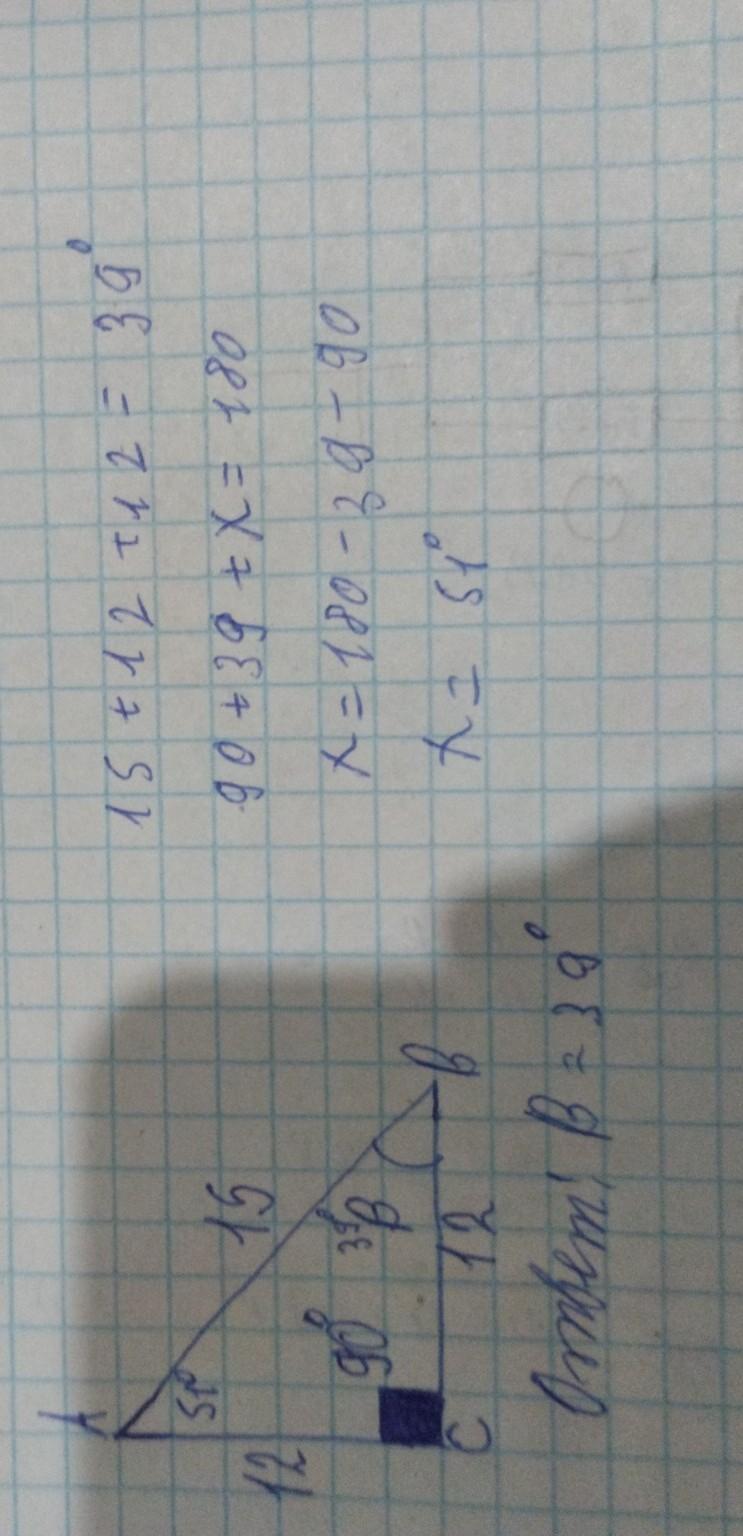 15 + 12 + 12 = 39°
90 + 39 + x = 180
x = 180 - 39 - 90
x = 51°
A
51°
15
12
90°
39°
β
B
C
12
Ответ: β = 39°